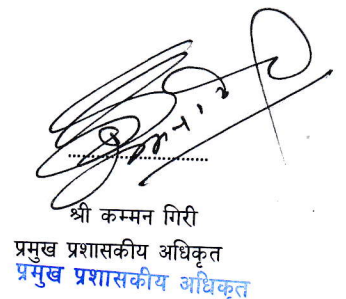 श्री कम्मन गिरी
प्रमुख प्रशासकीय अधिकृत
प्रमुख प्रशासकीय अधिकृत